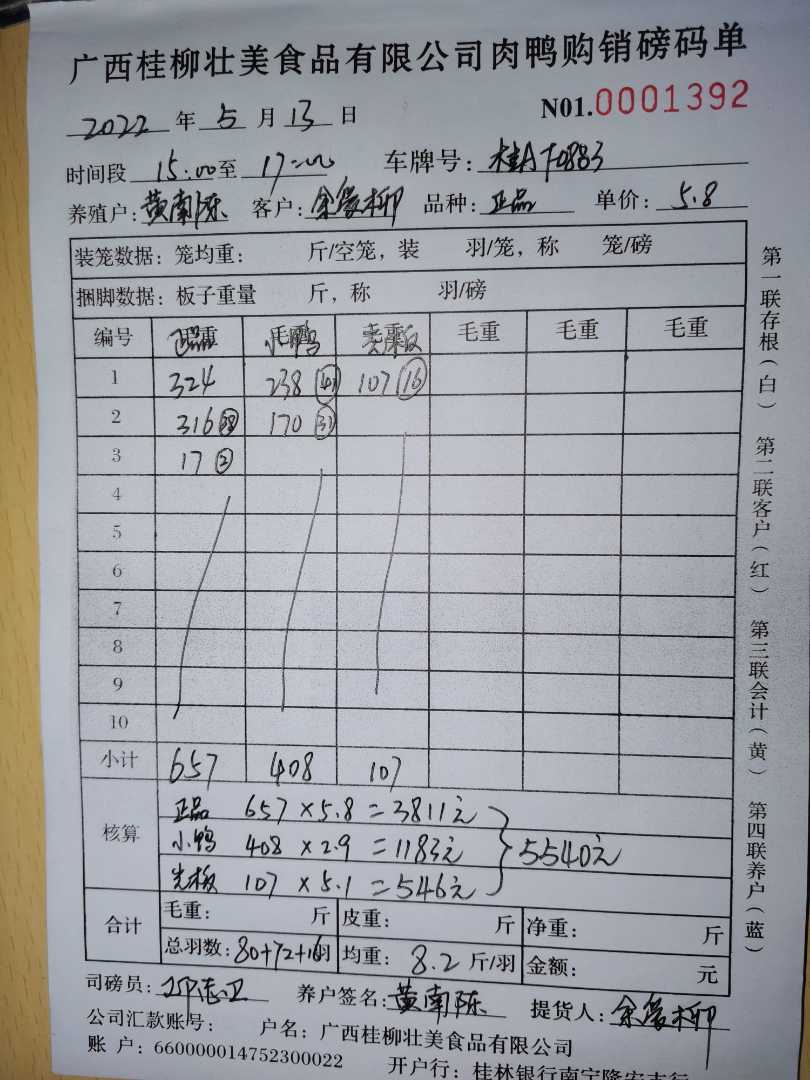 广西桂柳壮美食品有限公司肉鸭购销磅码单
2022 年 5 月 13 日 N01.0001392
时间段 15:00 至 17:00 车牌号: 桂AT0883
养殖户: 黄南陈 客户: 余爱柳 品种: 正品 单价: 5.8
装笼数据: 笼均重: 斤/空笼, 装 羽/笼, 称 笼/磅
捆脚数据: 板子重量 斤, 称 羽/磅
编号 正品 小鸭 毛重 毛重 毛重
1 324 238 107 (16)
2 316 170
3 17 (2)
4
5
6
7
8
9
10
小计 657 408 107
核算
正品 657 × 5.8 = 3811元
小鸭 408 × 2.9 = 1183元 5540元
光板 107 × 5.1 = 546元
合计 毛重: 斤 皮重: 斤 净重: 斤
总羽数: 80+72+16羽 均重: 8.2 斤/羽 金额: 元
司磅员: 养户签名: 黄南陈 提货人: 余爱柳
公司汇款账号: 户名: 广西桂柳壮美食品有限公司
账 户: 660000014752300022 开户行: 桂林银行南宁隆安支行
第一联存根(白) 第二联客户(红) 第三联会计(黄) 第四联养户(蓝)